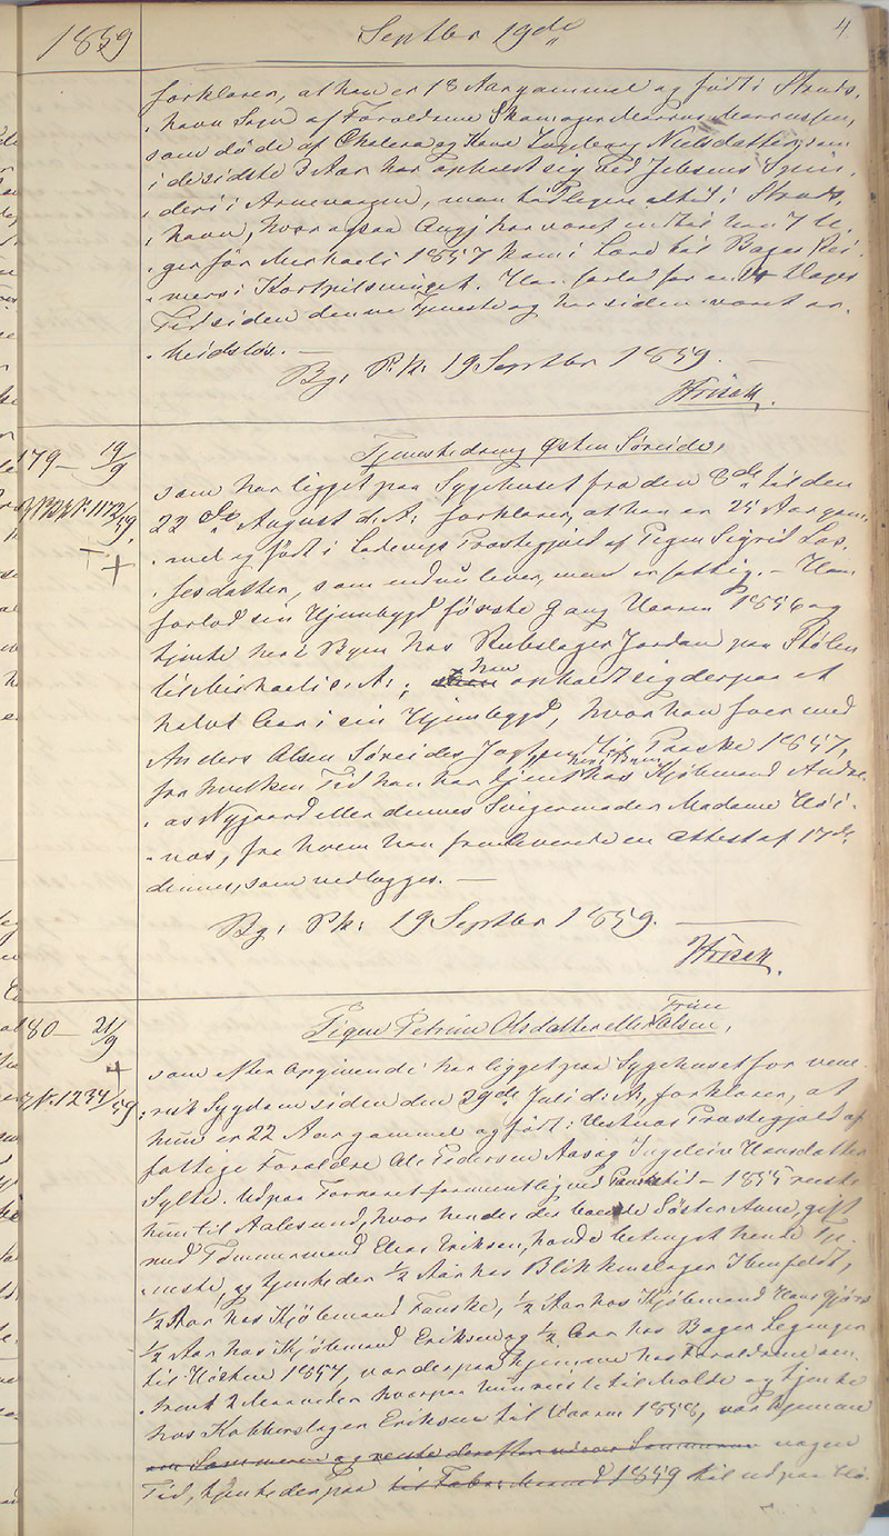 1859 Septbr 19de 4
forklarer, at han er 18 Aar gammel og født i Struds-
havn Sogn af Forældrene Skomager
som døde af Cholera og Kone Ingeborg Nielsdatter, som
i de sidste 3 Aar har opholdt sig ved Jebsens Spin-
deri i Arnevaagen, men tidligere altid i Struds-
havn, hvor ogsaa Angj. har været indtil han 7 U-
ger før Michaeli 1857 kom i Lære hos Bager
i Kortpilsmuget. Han forlod for en 14 Dages
Tid siden denne Tjeneste og har siden været ar-
beidsløs. —
Bg. Pk. 19 Septbr 1859. —
179 — 19/9
Tjenestedreng Østen Søreide,
No 1172/59.
som har ligget paa Sygehuset fra den 8de til den
22de August d. A. forklarer, at han er 25 Aar gam-
mel og født i Ladevigs Præstegjæld af Pigen Sigrid Las-
sesdatter, som endnu lever, men er fattig. — Han
forlod sin Hjembygd første Gang Vaaren 1856 og
tjente her i Byen hos Rebslager Jordan paa Stølen
til Michaeli s. A.; han opholdt sig derpaa et
halvt Aar i sin Hjembygd, hvor han foer med
Anders Olsen Søreides Jagt Paaske 1857,
fra hvilken Tid han har tjent her i Byen hos Kjøbmand Andre-
as Nygaard eller dennes Svigermoder Madame
fra hvem han fremleverede en Attest af 17de
dennes, som vedlægges. —
Bg. Pk. 19 Septbr 1859. —
180 — 21/9
Pigen Petrine Olsdatter eller Trine Olsen,
No 1234/59
som efter Angivende har ligget paa Sygehuset for vene-
risk Sygdom siden den 29de Juli d. A., forklarer, at
hun er 22 Aar gammel og født i Vestnæs Præstegjæld af
fattige Forældre Ole Pedersen Aas og Ingeleiv Hansdatter
Sylte. Udpaa Foraaret formentlig ved Paasketid — 1855 reiste
hun til Aalesund, hvor hendes der boende Søster Anne, gift
med Tømmermand Elias Eriksen, havde betinget hende Tje-
neste, og tjente der ½ Aar hos Blikkenslager
½ Aar hos Kjøbmand Fanske, ½ Aar hos Kjøbmand
½ Aar hos Kjøbmand Eriksen og ½ Aar hos Bager
til Høsten 1857, var derpaa hjemme hos Forældrene om-
trent 2 Maaneder hvorpaa hun reiste til Molde og tjente
hos Kobberslager Eriksen til Vaaren 1858, var hjemme
om Sommeren og reiste derefter Sommeren nogen
Tid, tjente derpaa til 1859 til udpaa